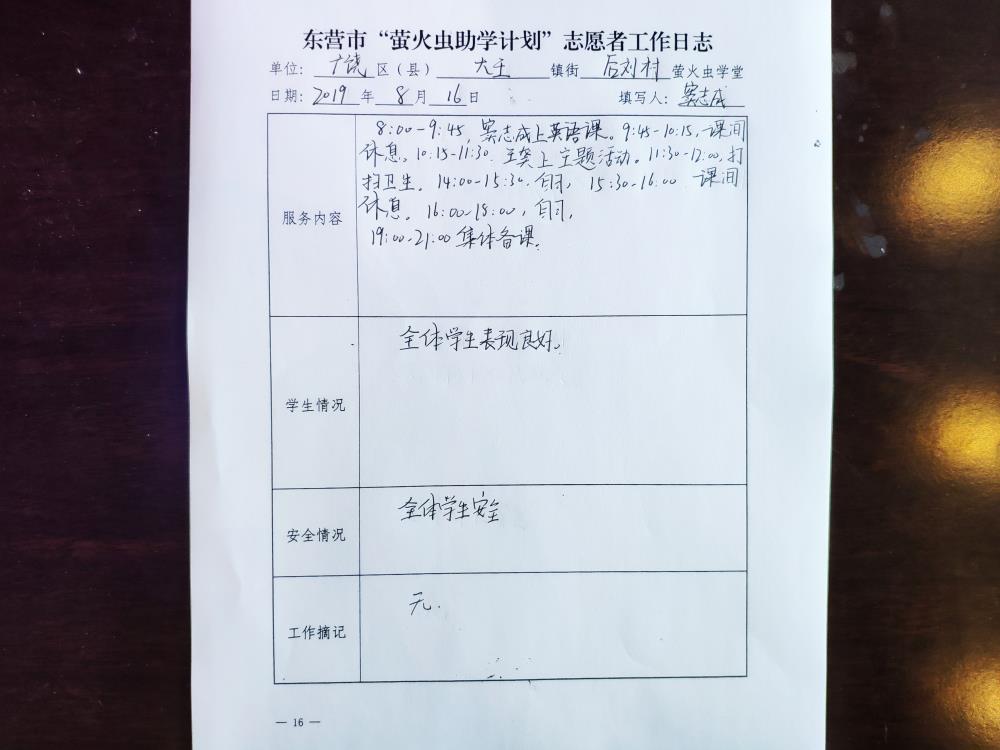 东营市“萤火虫助学计划”志愿者工作日志
单位：广饶区（县）大王镇街 后刘村 萤火虫学堂
日期：2019年8月16日 填写人：窦志成
服务内容
8:00-9:45，窦志成上英语课。9:45-10:15，课间
休息。10:15-11:30. 王奕上主题活动。11:30-12:00，打
扫卫生。14:00-15:30，自习，15:30-16:00 课间
休息。16:00-18:00，自习，
19:00-21:00 集体备课.
学生情况
全体学生表现良好。
安全情况
全体学生安全
工作摘记
无.
— 16 —